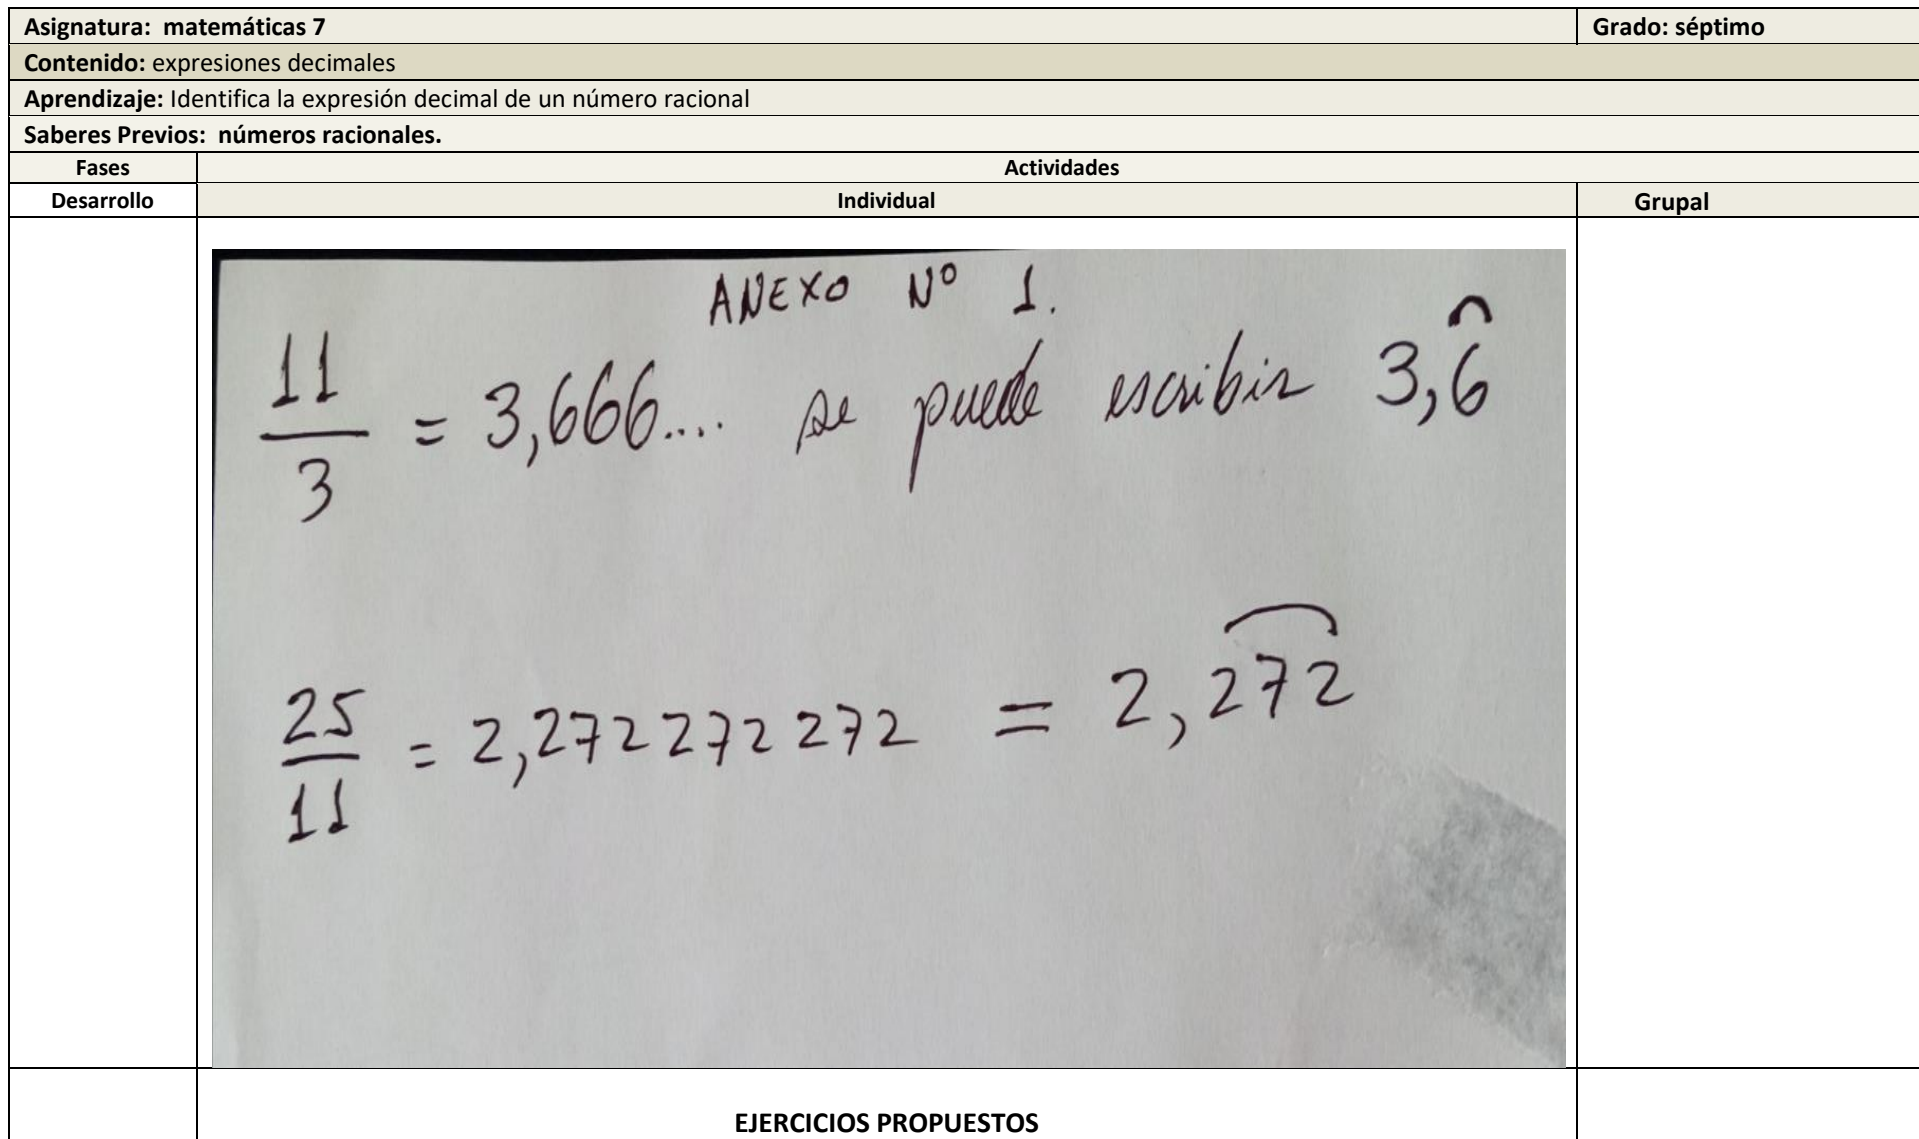 Asignatura: matemáticas 7 Grado: séptimo
Contenido: expresiones decimales
Aprendizaje: Identifica la expresión decimal de un número racional
Saberes Previos: números racionales.
Fases Actividades
Desarrollo Individual Grupal
ANEXO Nº 1.
11/3 = 3,666.... se puede escribir 3,6̂
25/11 = 2,272 272 272 = 2,2͡72
EJERCICIOS PROPUESTOS